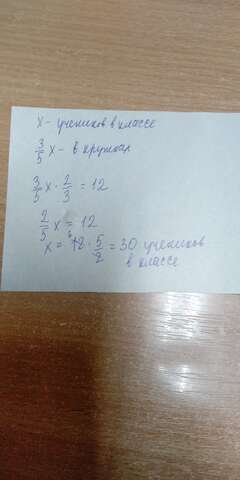 x - учеников в классе
3/5 x - в кружках
3/5 x · 2/3 = 12
2/5 x = 12
x = 12 · 5/2 = 30 учеников
в классе